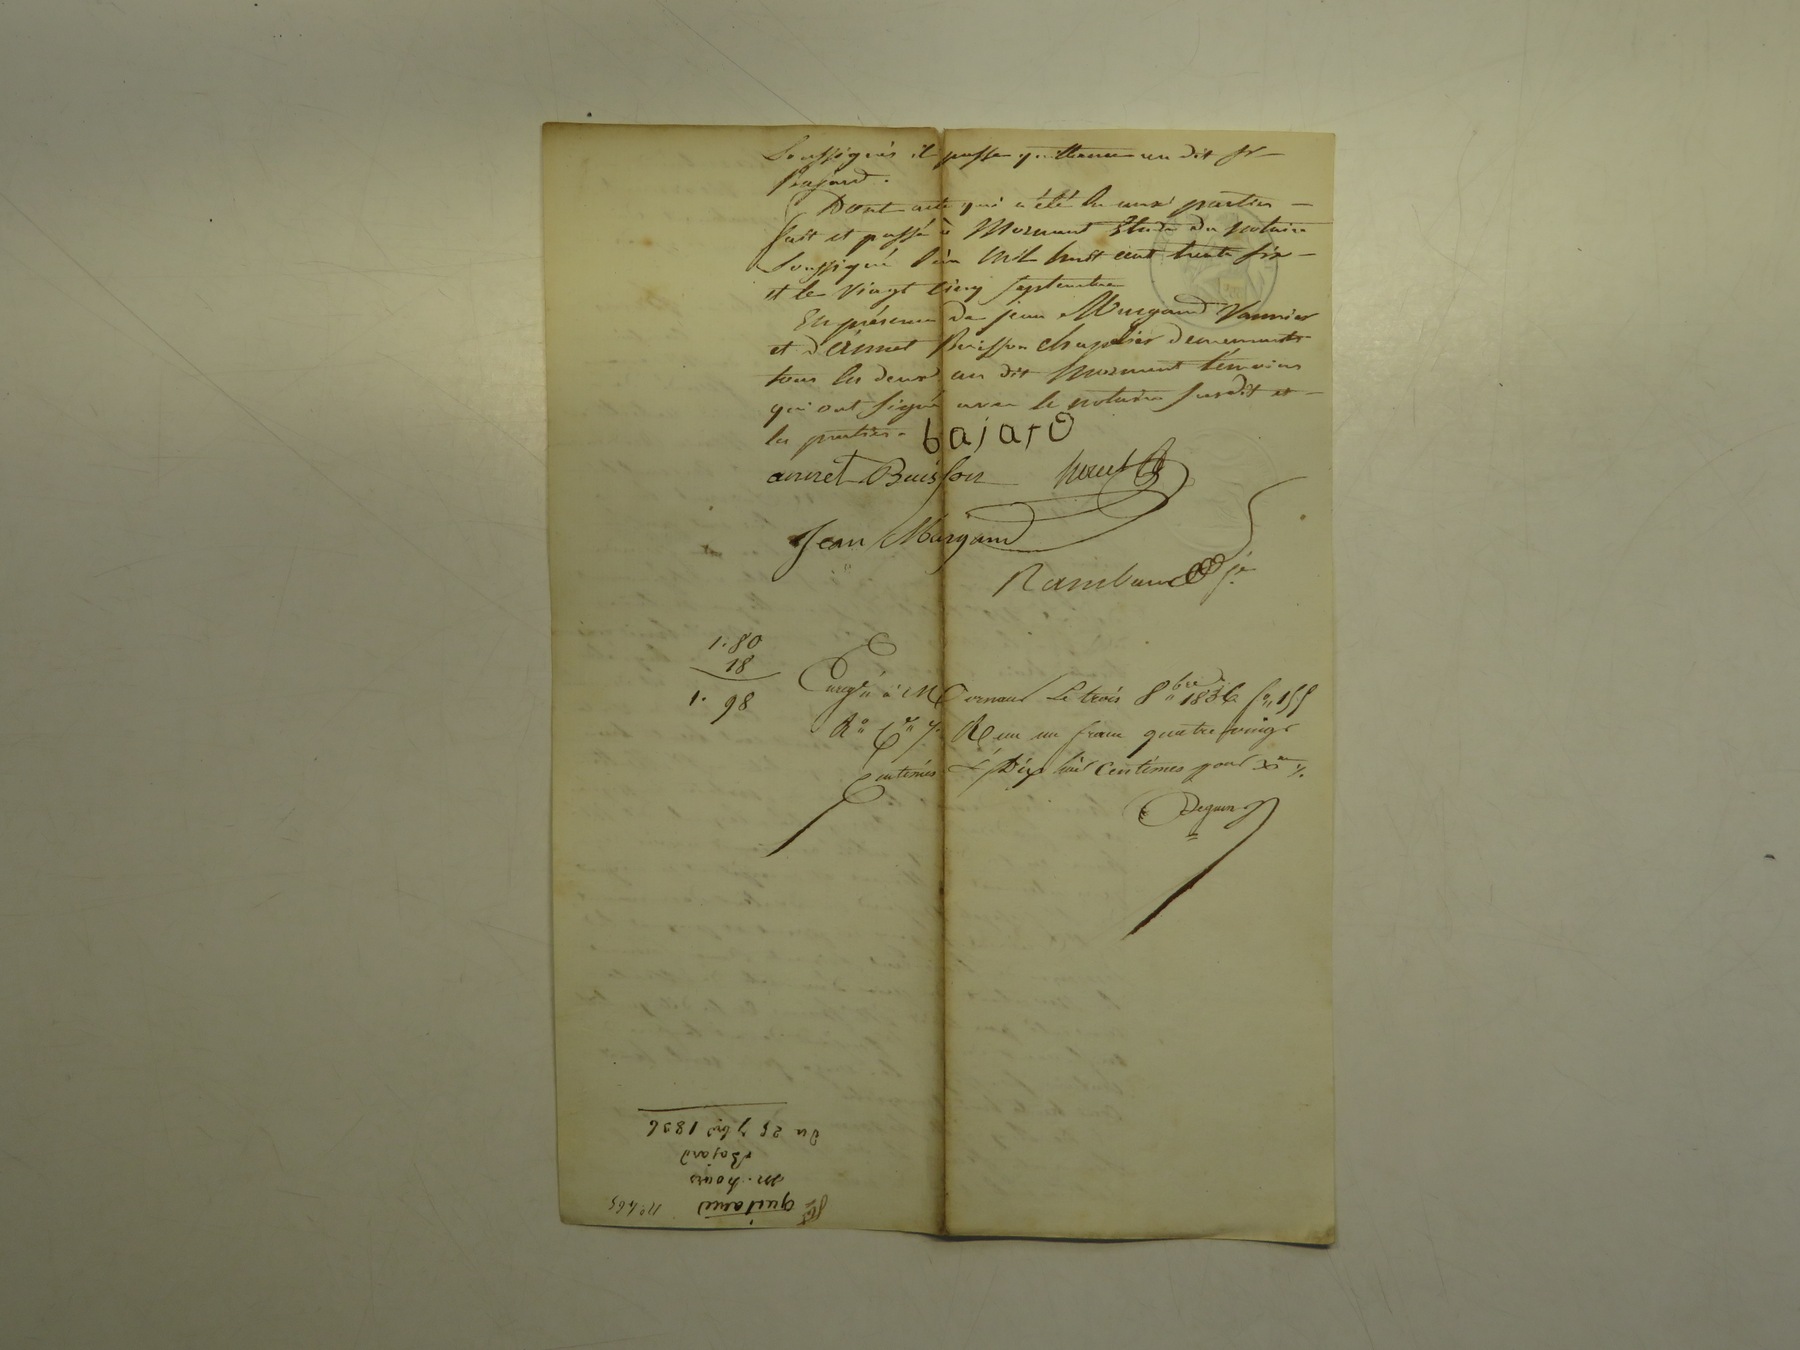 Soussignés il passe quittance au dit Sr
Bajard.
Dont acte qui a été lu aux parties
fait et passé à Mornant Etude du notaire
soussigné l'an mil huit cent trente six
et le vingt cinq septembre
En présence de jean Murgand Vannier
et d'annet Buisson chapelier demeurants
tous les deux au dit Mornant témoins
qui ont signé avec le notaire susdit et
les parties.
bajard
annet Buisson
Jean Murgand
Rambaud
1.80
18
1.98
à Mornant Le trois 8bre 1836 fo 155
Ro Co 7. Reçu un franc quatre vingt
Centimes & Dix huit Centimes pour Xme
Deguin
quitance
m. houis
Bajard
du 25 7bre 1836